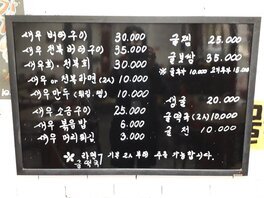 새우 버터구이 30.000
새우 전복 버터구이 35.000
새우회, 전복회 30.000
새우 or 전복라면(2人) 10.000
새우만두 (튀김.찜) 10.000
새우 소금구이 25.000
새우 볶음밥 6.000
새우 머리튀김 3.000
굴찜 25.000
굴보쌈 35.000
추가 10.000 추가 15.000
생굴 20.000
굴떡국(2人) 10.000
굴전 10.000
※ 라면, 굴떡국 기본 2人 부터 주문 가능합니다.